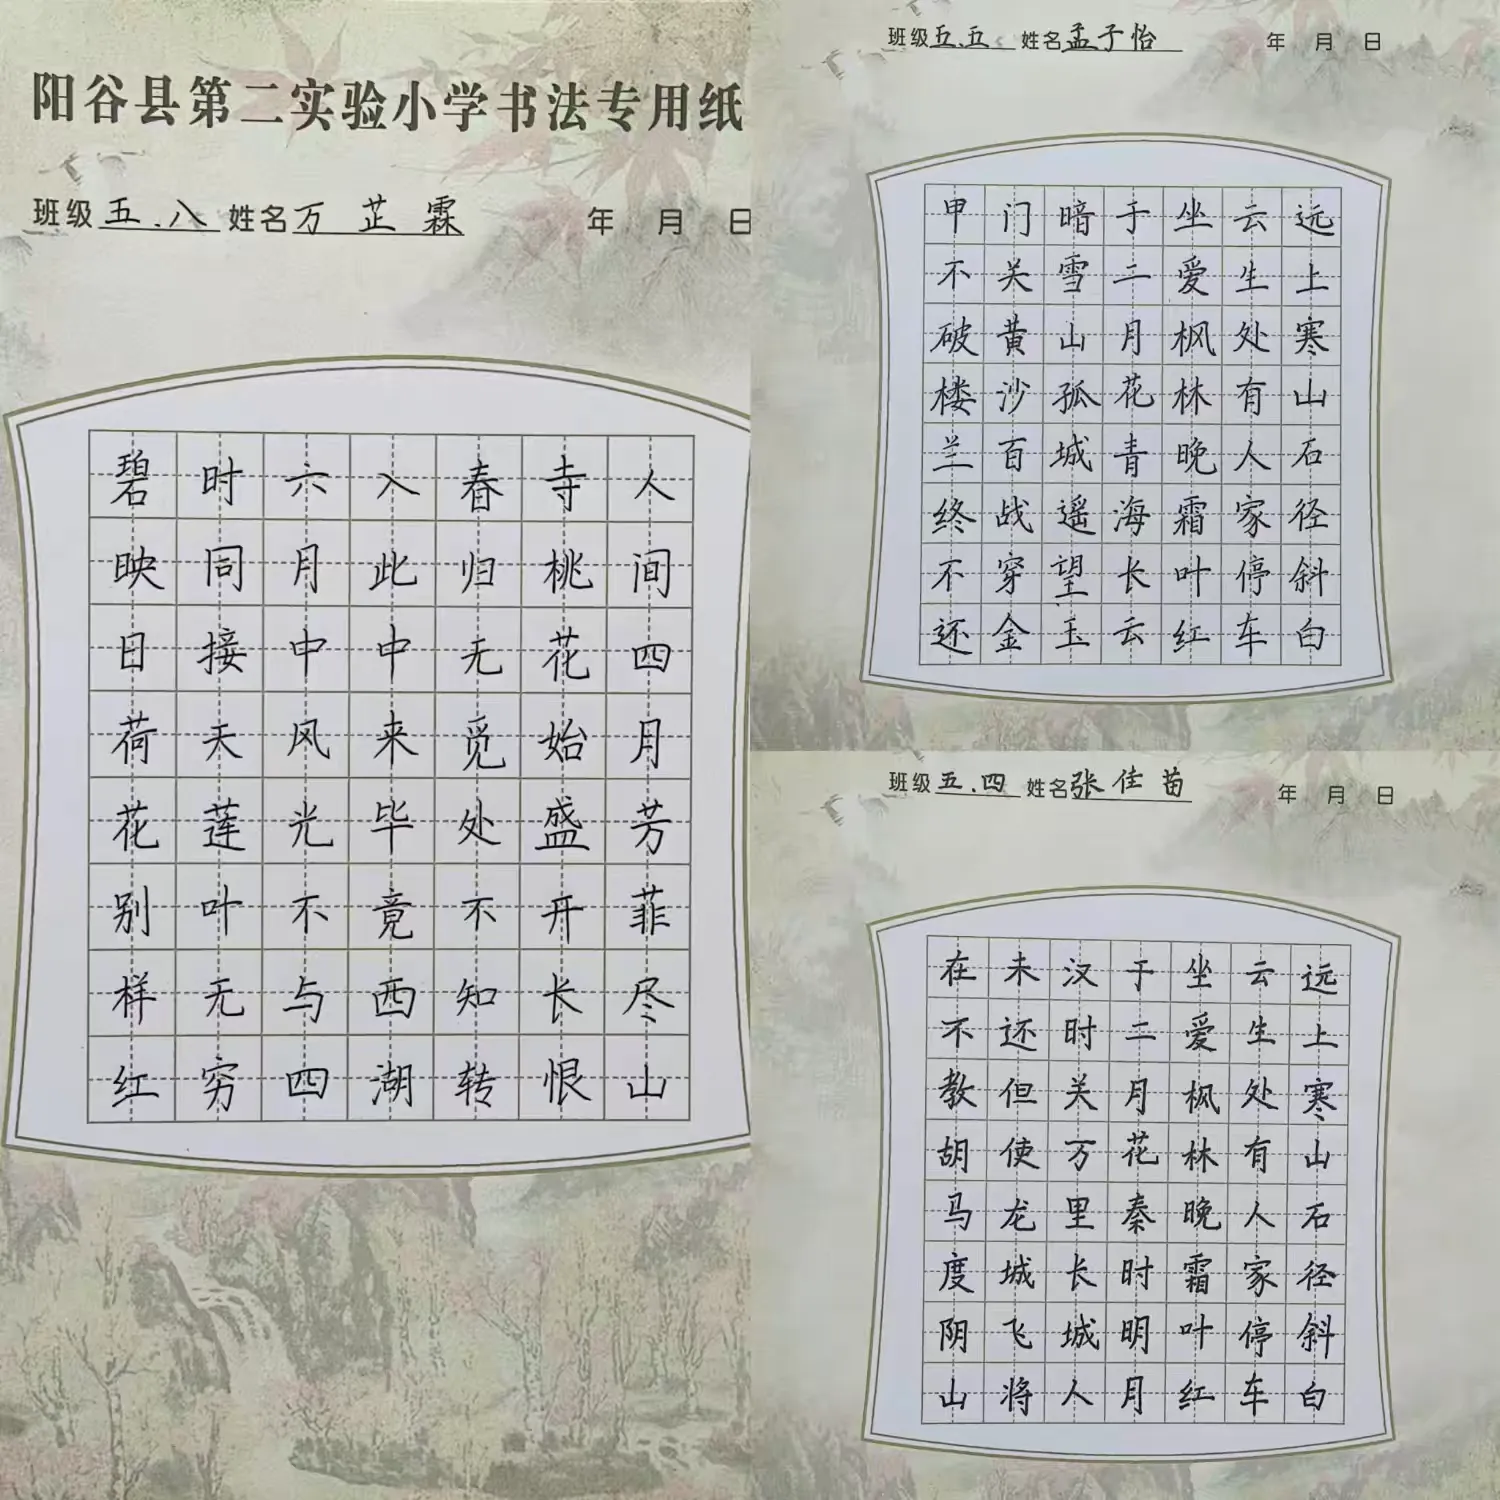 阳谷县第二实验小学书法专用纸
班级五.八 姓名万芷霖 年 月 日
人间四月芳菲尽山
寺桃花始盛开长恨
春归无觅处不知转
入此中来毕竟西湖
六月中风光不与四
时同接天莲叶无穷
碧映日荷花别样红
班级五.五 姓名孟子怡 年 月 日
远上寒山石径斜白
云生处有人家停车
坐爱枫林晚霜叶红
于二月花青海长云
暗雪山孤城遥望玉
门关黄沙百战穿金
甲不破楼兰终不还
班级五.四 姓名张佳苗 年 月 日
远上寒山石径斜白
云生处有人家停车
坐爱枫林晚霜叶红
于二月花秦时明月
汉时关万里长城人
未还但使龙城飞将
在不教胡马度阴山